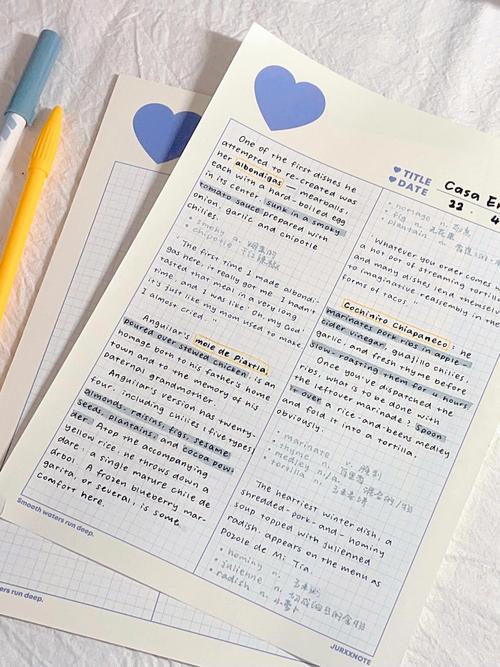 TITLE
DATE
Casa
22 .
One of the first dishes he
attempted to re-created was
her albondigas - meatballs,
each with a hard-boiled egg
in its center, sunk in a smoky
tomato sauce prepared with
onion, garlic and chipotle
chilies.
• smoky a.
• chipotle n.
The first time I made albondi-
gas here, it really got me. I hadn't
tasted that meal in a very long
time, and I was like: "Oh my God,
it's just like my mom used to make
I almost cried."
Anguilar's mole de Piaxtla,
poured over stewed chicken, is an
homage both to his father's home
town and to the memory of his
paternal grandmother.
Anguilar's version has twenty-
four, including chilies (five types
almonds, raisins, figs, sesame
seeds, plantains, and cocoa pow-
der. Atop the accompanying
yellow rice, he throws down a
dare: a single mature chile de
árbol. A frozen blueberry mar-
garita, or several, is some
comfort here.
• homage n.
• fig n. 无花果
• plantain n.
Whatever you order comes
a hot pot of streaming tortil
and many dishes lend themselve
to imaginative reassembly in th
forms of tacos.
Cochinito Chiapaneco, he
marinates pork ribs in apple-
cider vinegar, guajillo chilies,
garlic, and fresh thyme before
slow-roasting them for 4 hours
Once you've dispatched the
ribs, what is to be done with
the leftover marinade? Spoon
it over a rice-and-beans medley
and fold it into a tortilla.
obviously.
• marinate v.
• thyme n.
• medley n./a.
• tortilla n.
The heartiest winter dish, a
shredded-pork-and-hominy
soup topped with julienned
radish, appears on the menu as
Pozole de Mi Tía.
• hominy n.
• julienne n.
• radish n. 小萝卜
Smooth waters run deep.
ers run deep.
JURXXNOTE